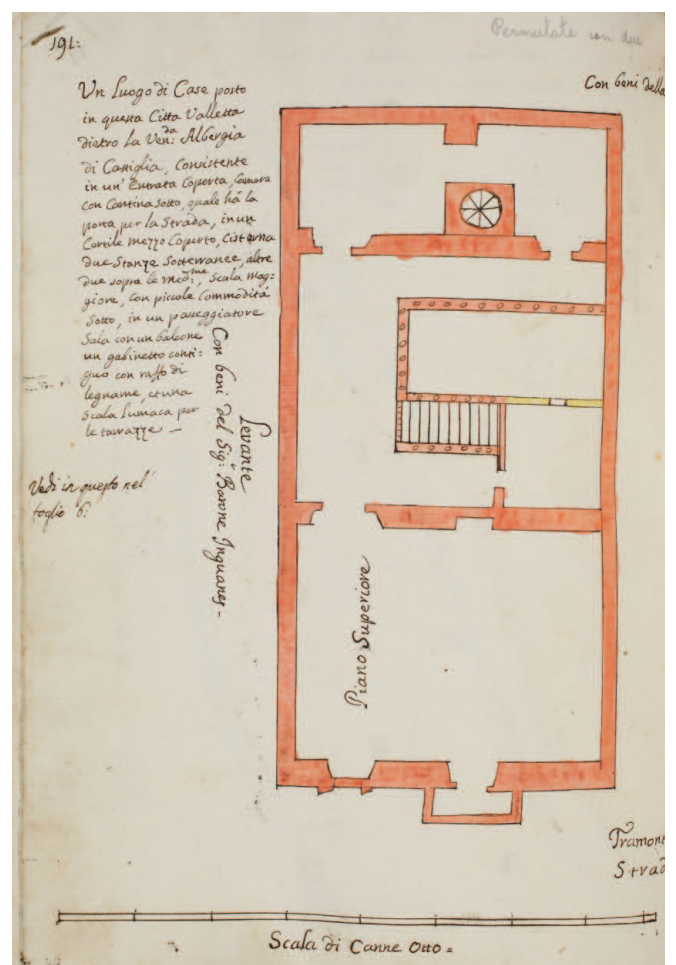 191:
Permutate con due
Con beni della
Un Luogo di Case posto
in questa Citta Valletta
dietro La Ven:da Albergia
di Castiglia, Consistente
in un' Entrata Coperta, Camera
con Cantina Sotto, quale há la
porta per la Strada, in un
Cortile mezzo Coperto, Cisterna
due Stanze Sotterranee, altre
due sopra le med:me, Scala mag:
giore, con piccole Commoditá
Sotto, in un passeggiatore
Sala con un balcone
un gabinetto conti:
guo con raffo di
legname, et una
Scala Lumaca per
le tarrazze —
Vedi in questo nel
foglio 6:
Levante
Con beni del Sig:r Barone Inguanes -
Piano Superiore
Tramont
Strad
Scala di Canne Otto =